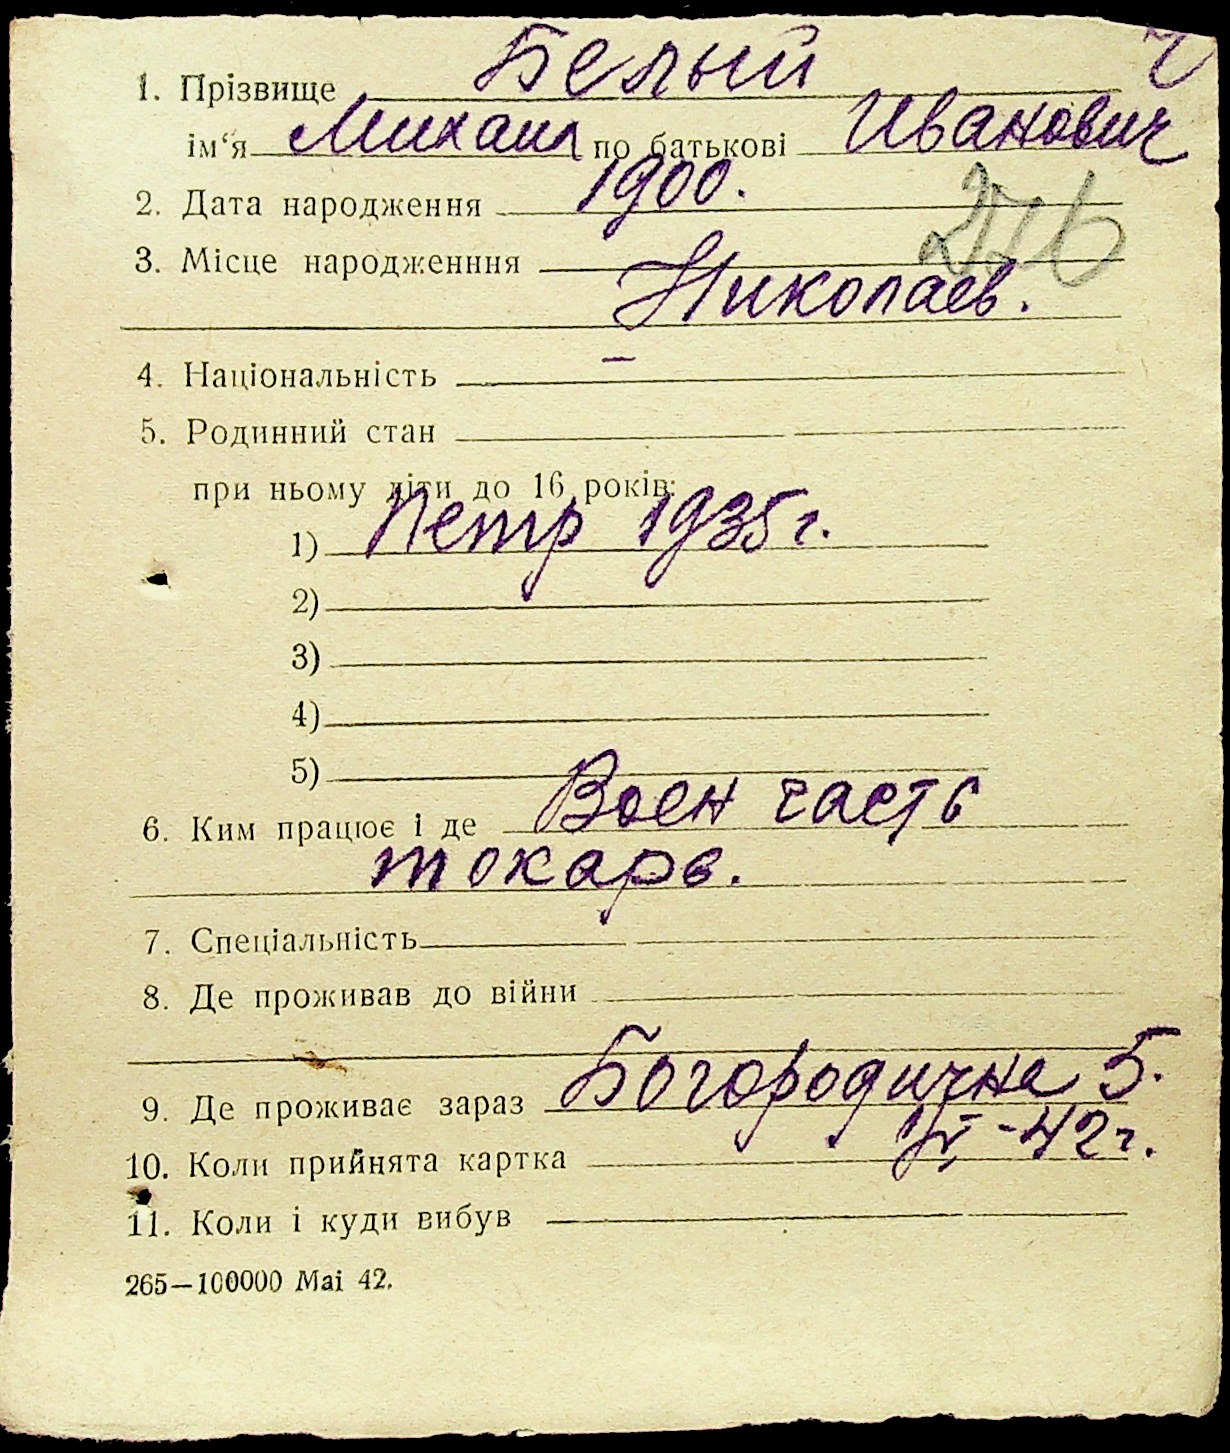 1. Прізвище Белый
ім'я Михаил по батькові Иванович
2. Дата народження 1900.
3. Місце народженння
Николаев.
4. Національність –
5. Родинний стан
при ньому діти до 16 років:
1) Петр 1935 г.
2)
3)
4)
5)
6. Ким працює і де Воен часть
токарь.
7. Спеціальність
8. Де проживав до війни
9. Де проживає зараз Богородична 5.
10. Коли прийнята картка -42 г.
11. Коли і куди вибув
265—100000 Mai 42.